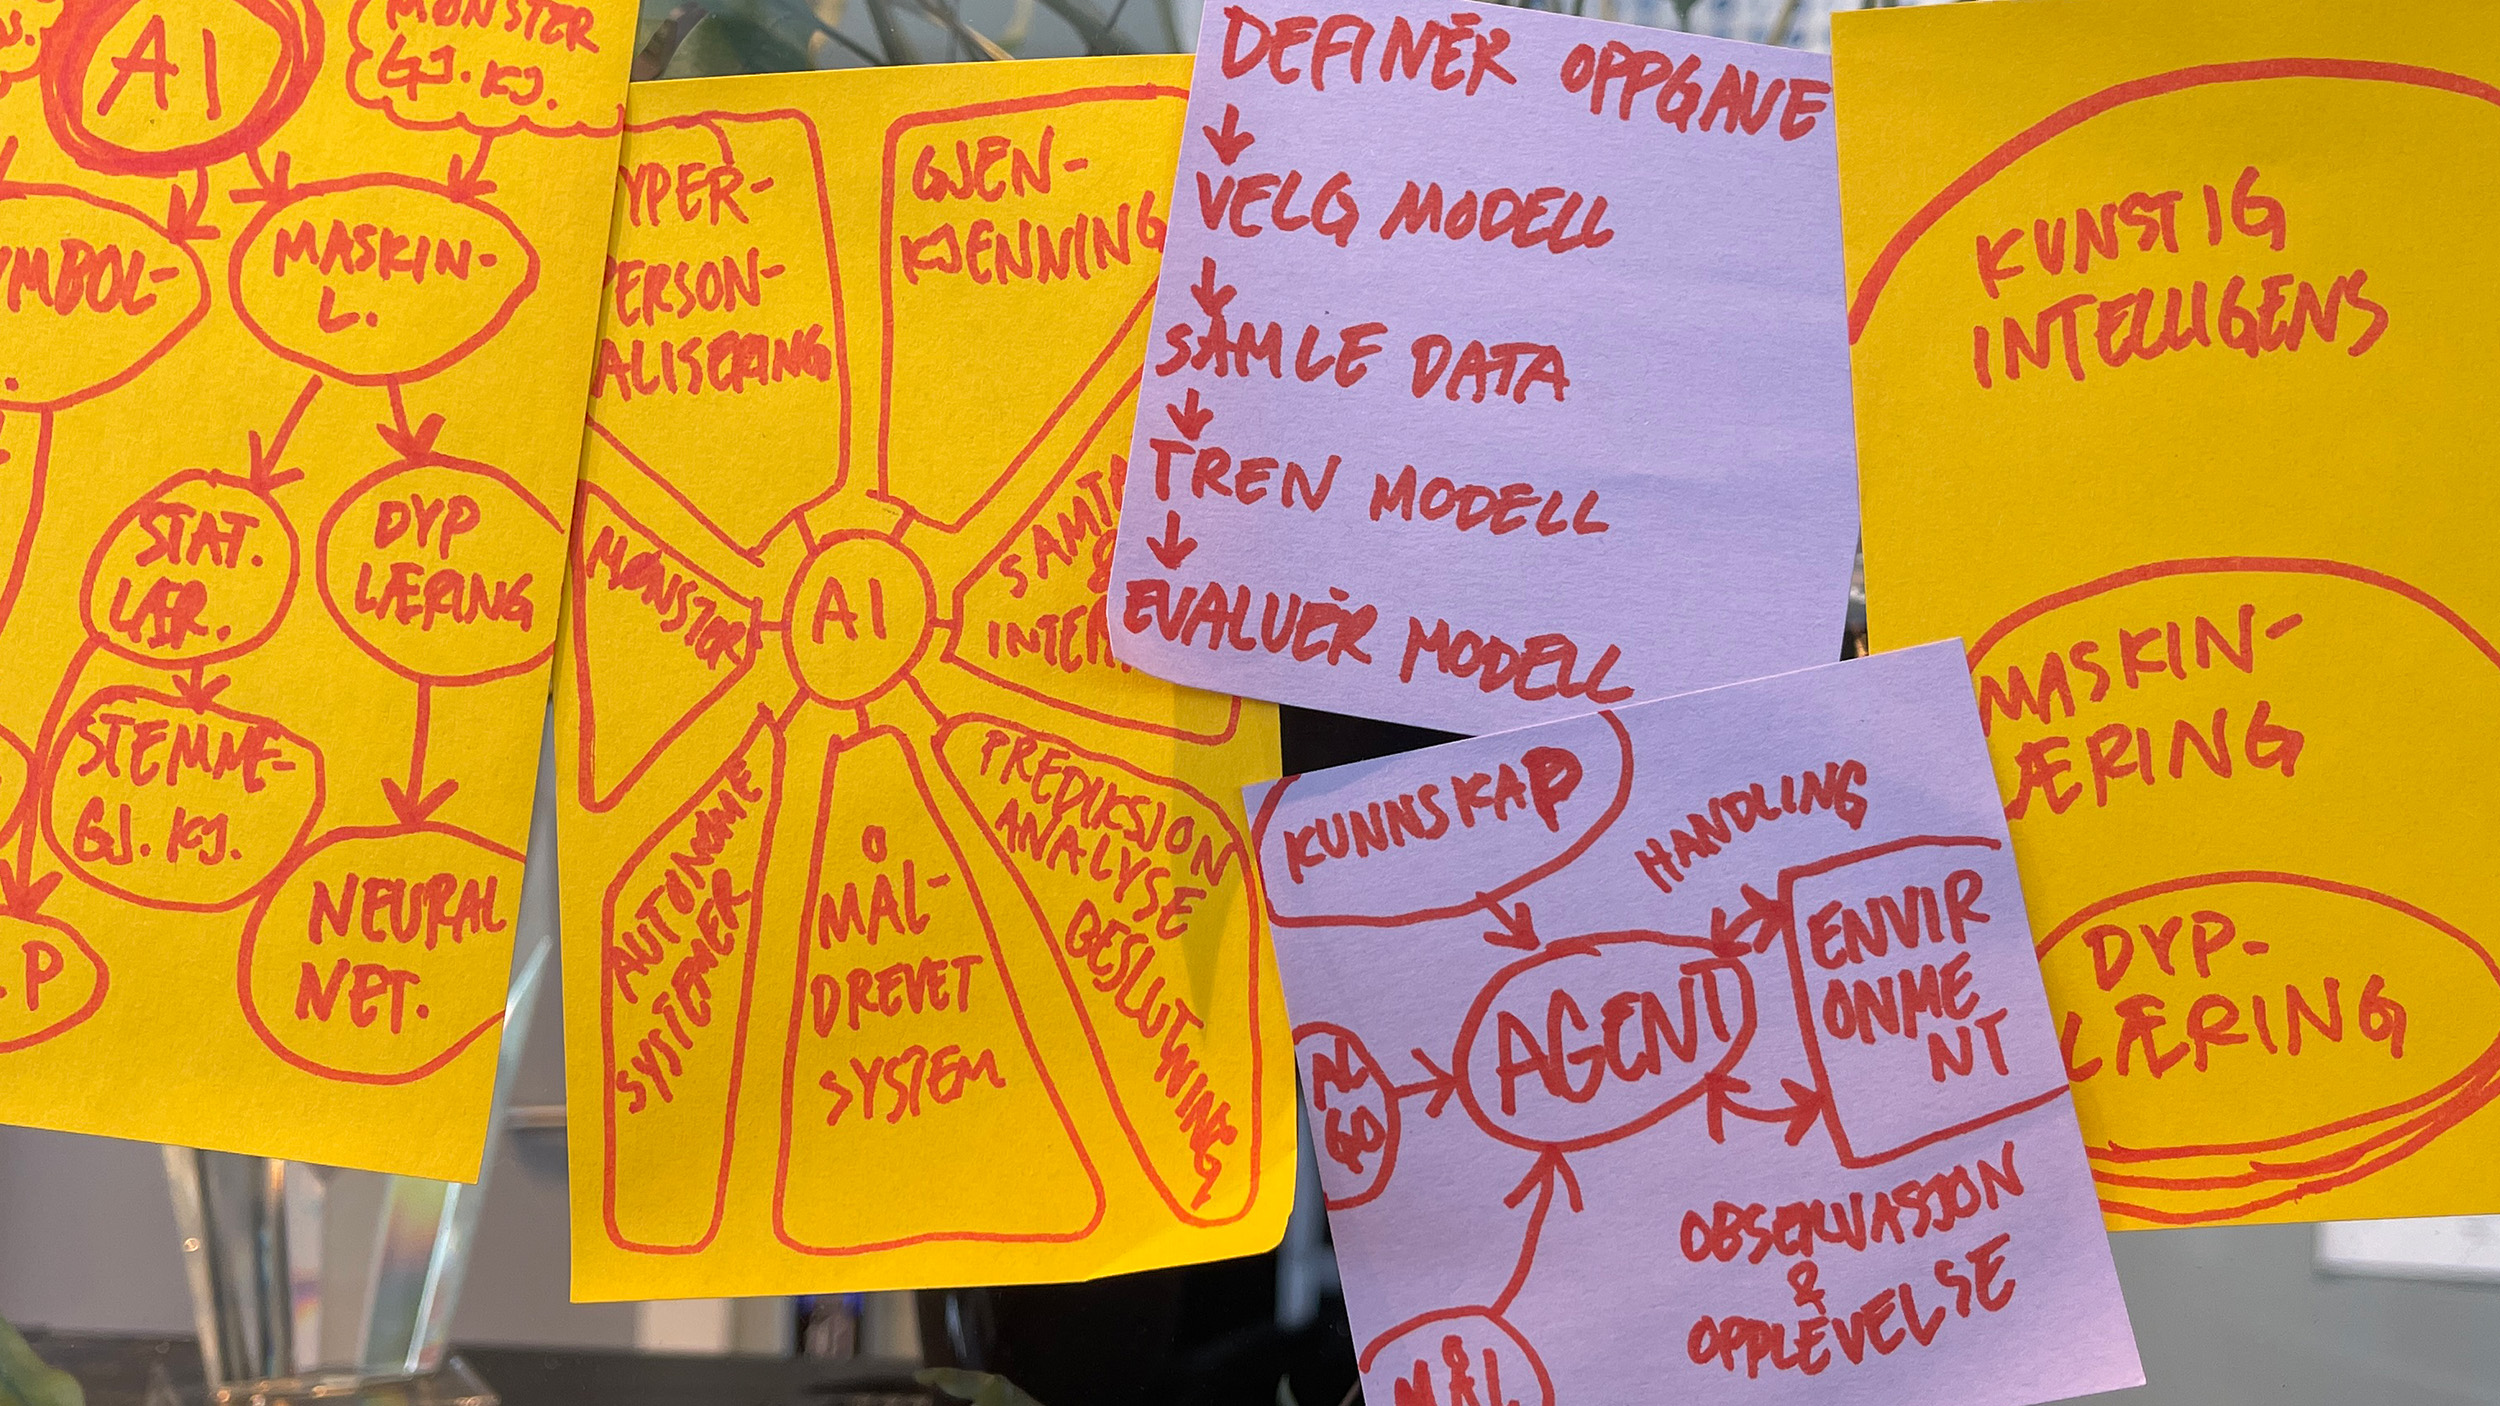 AI
MØNSTER
GJ.KJ.
YMBOL-
MASKIN-
L.
STAT.
LÆR.
DYP
LÆRING
STEMME-
GJ.KJ.
NEURAL
NET.
.P
YPER-
PERSON-
ALISERING
GJEN-
KJENNING
MØNSTOR
AI
SAMT
&
INTER
AUTONOME
SYSTEMER
MÅL-
DREVET
SYSTEM
PREDIKSJON
ANALYSE
BESLUTNING
DEFINÉR OPPGAVE
↓
VELG MODELL
↓
SAMLE DATA
↓
TREN MODELL
↓
EVALUÉR MODELL
KUNNSKAP
HANDLING
AGENT
ENVIR
ONME
NT
AL
GO
MÅL
OBSERVASJON
&
OPPLEVELSE
KUNSTIG
INTELLIGENS
MASKIN-
LÆRING
DYP-
LÆRING